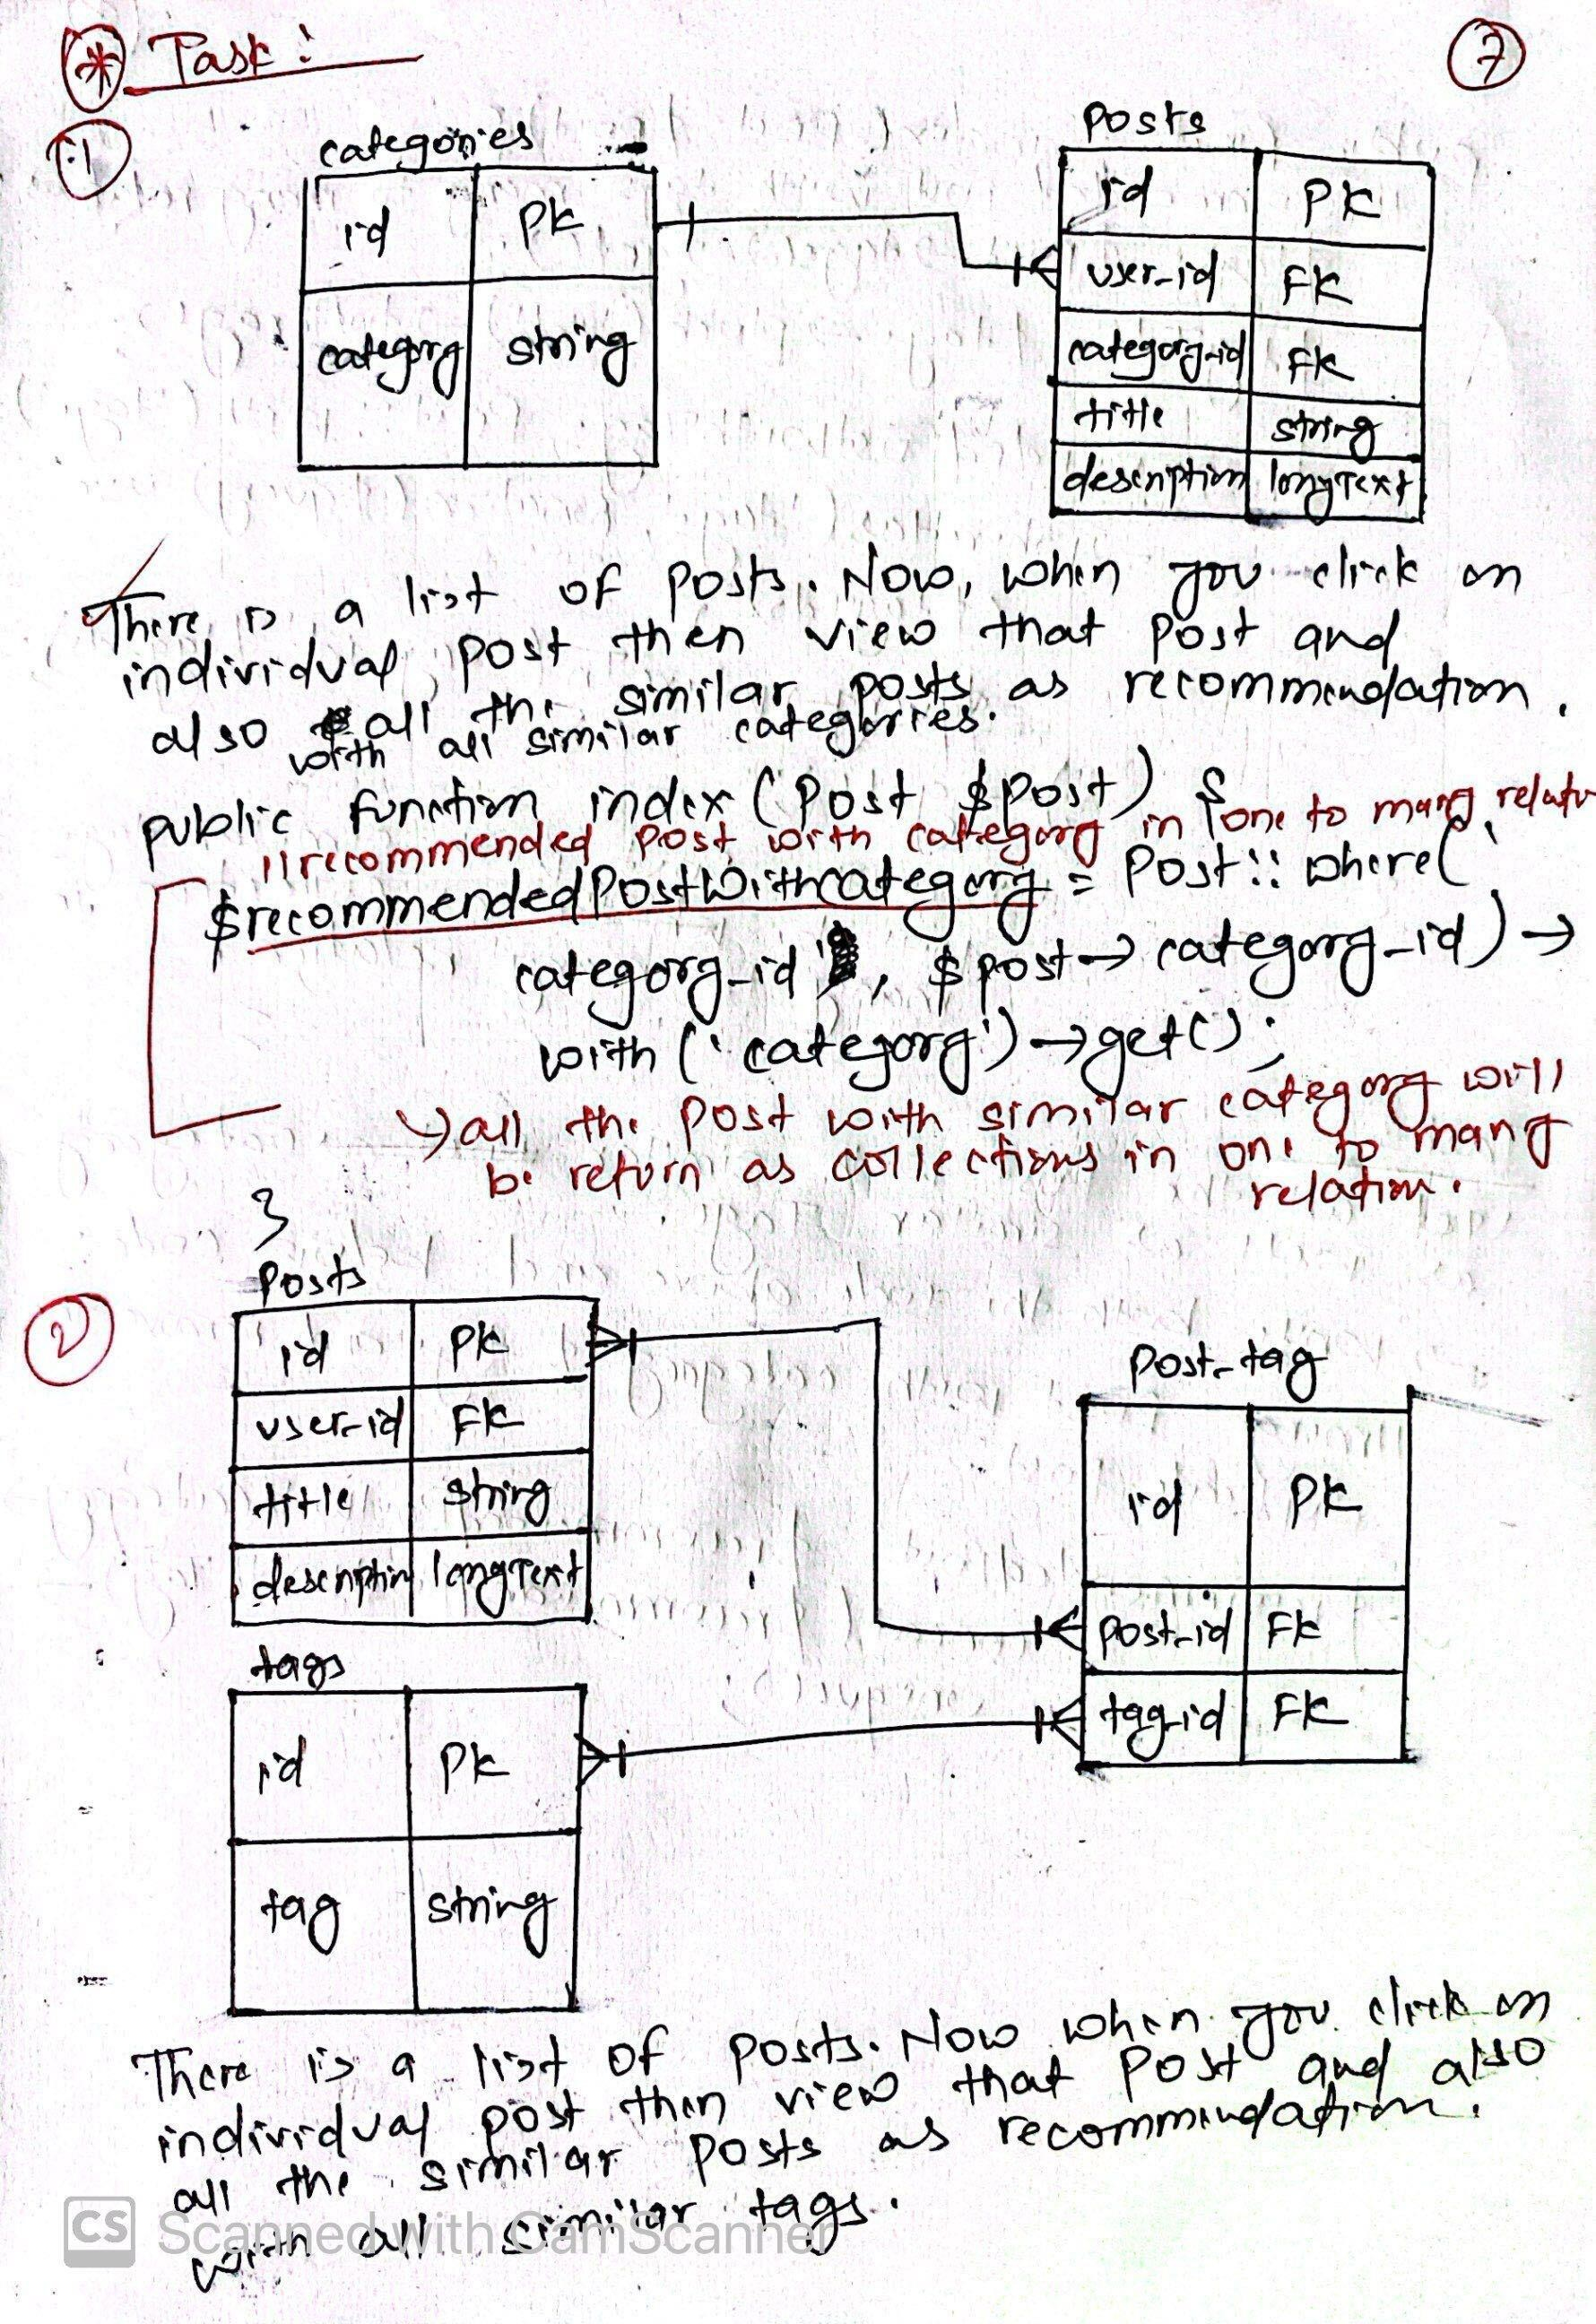 * Task :
7
1
categories
id PK
category string
posts
id PK
user_id FK
category_id FK
title string
description longText
There is a list of posts. Now, when you click on
individual post then view that post and
also all the similar posts as recommendation.
with all similar categories.
public function index (Post $post) {
//recommended post with category in one to many
$recommendedPostWithcategory = Post :: where('
category_id', $post→category_id)→
with ('category')→get();
→ all the post with similar category will
be return as collections in one to many
relation.
}
2
Posts
id PK
user_id FK
title string
description longText
Post_tag
id PK
post_id FK
tag_id FK
tags
id PK
tag string
There is a list of posts. Now when you click on
individual post then view that post and also
all the similar posts as recommendation.
with all similar tags.
CS Scanned with CamScanner